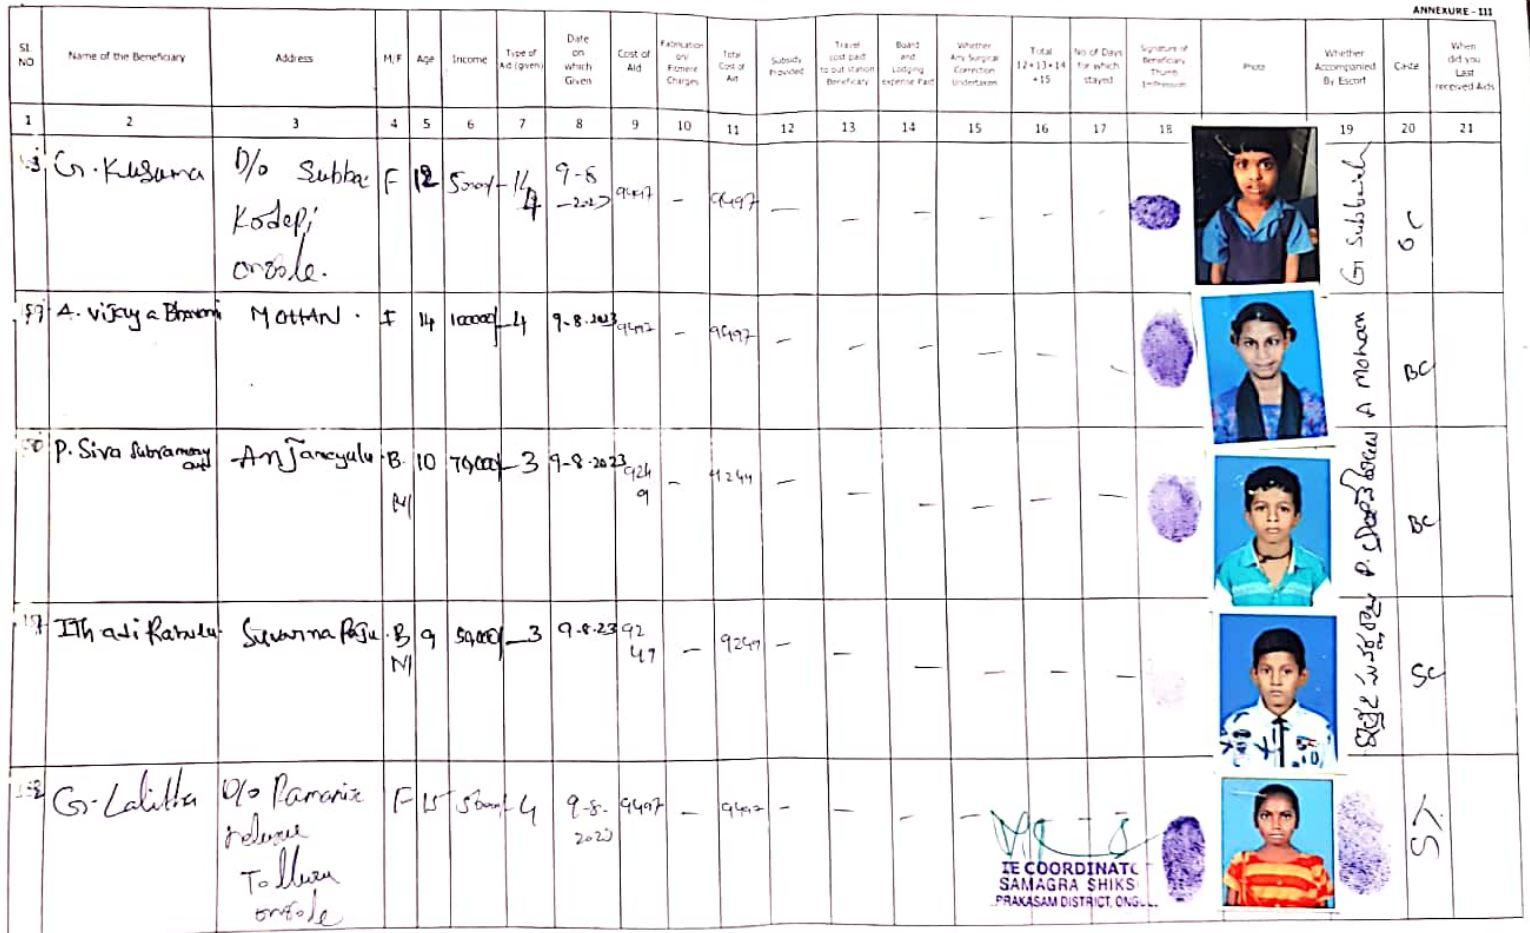 ANNEXURE - III
SI. NO Name of the Beneficiary Address M/F Age Income Type of Aid (given) Date on which Given Cost of Aid Fabrication on/ Fitment Charges Total Cost of Aid Subsidy Provided Travel cost paid to out station Beneficiary Board and Lodging expense Paid Whether Any Surgical Correction Undertaken Total 12+13+14 +15 No of Days for which stayed Signature of Beneficiary Thumb Impression Photo Whether Accompanied By Escort Caste When did you Last received Aids
1 2 3 4 5 6 7 8 9 10 11 12 13 14 15 16 17 18 19 20 21
G. Kusuma D/o Subba F 12 9-8 9497 - 9497 - - - - - - G Subbaiah
Kodepi
ongole.
A. Vijaya Bhavani MOHAN . F 14 100000/- 4 9-8-2023 9497 - 9497 - - - - - - A Mohan BC
P. Siva Subramany Anjaneyulu B. 10 70,000/- 3 9-8-2023 9249 - 9249 - - - - - - BC
M
Rahulu. Suvarna Raju . B 9 50,000/- 3 9-8-23 9247 - 9247 - - - - - - SC
M
G. Lalitha D/o F 15 4 9-8- 9497 - 9497 - - - - - - ST
2023
ongole
IE COORDINATO
SAMAGRA SHIKS
PRAKASAM DISTRICT, ONG